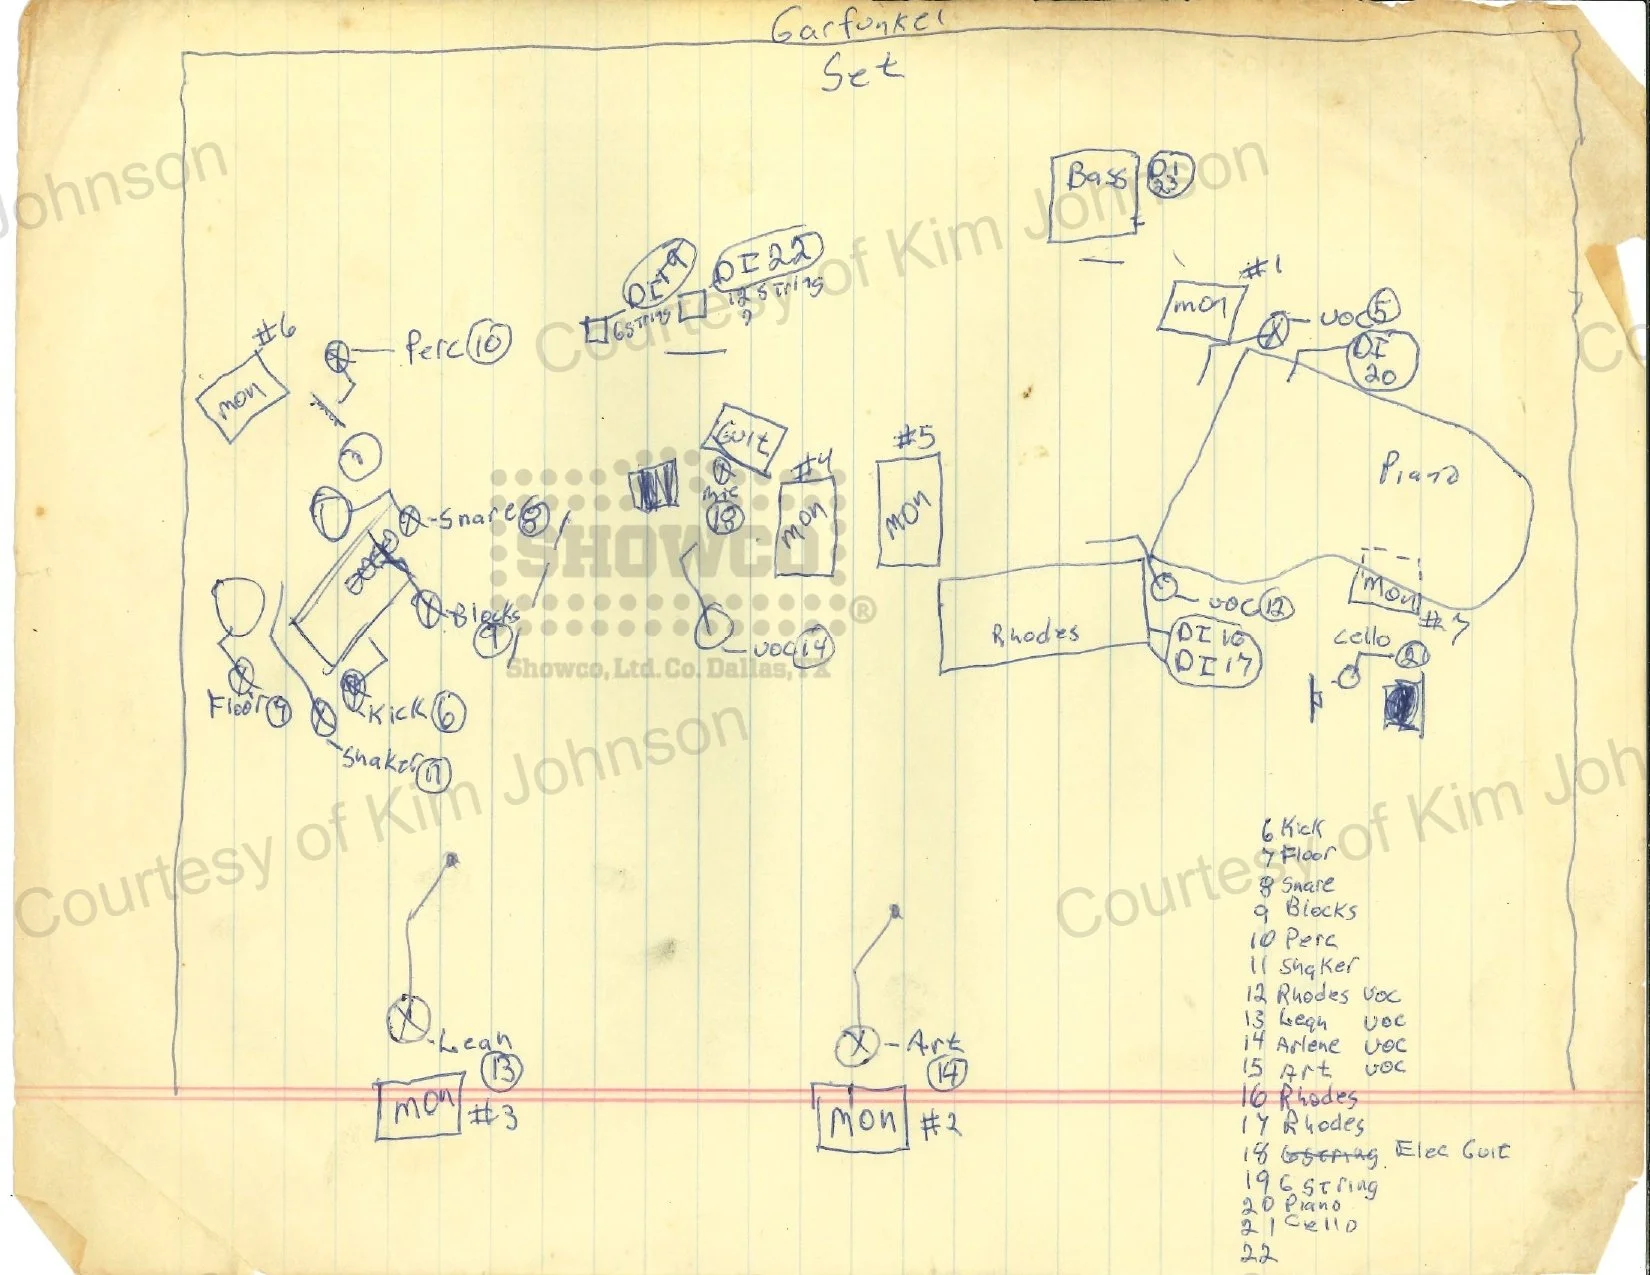 Garfunkel
Set
Bass
DI
23
DI 19
DI 22
6 string
12 string
?
#1
mon
voc 5
DI
20
#6
mon
Perc 10
Guit
#4
mon
#5
mon
Piano
mic
18
Snare 8
Blocks
9
voc 14
Rhodes
voc 12
DI 16
DI 17
Mon
#7
cello
21
Floor 9
Kick 6
Shaker 11
SHOWCO®
Showco, Ltd. Co. Dallas, TX
Lean
13
mon
#3
Art
14
mon
#2
6 Kick
7 Floor
8 Snare
9 Blocks
10 Perc
11 Shaker
12 Rhodes voc
13 Lean voc
14 Arlene voc
15 Art voc
16 Rhodes
17 Rhodes
18 6 string Elec Guit
19 6 string
20 Piano
21 Cello
22
Johnson
Courtesy of Kim Johnson
Co
Courtesy of Kim Johnson
Courtesy of Kim Joh